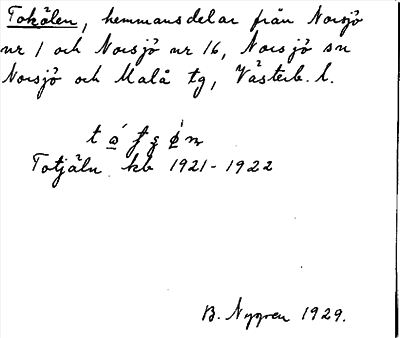 Tokälen, hemmansdelar från Norsjö
nr 1 och Norsjö nr 16, Norsjö sn
Norsjö och Malå tg, Västerb. l.
Totjäln kb 1921-1922
B. Nygren 1929.